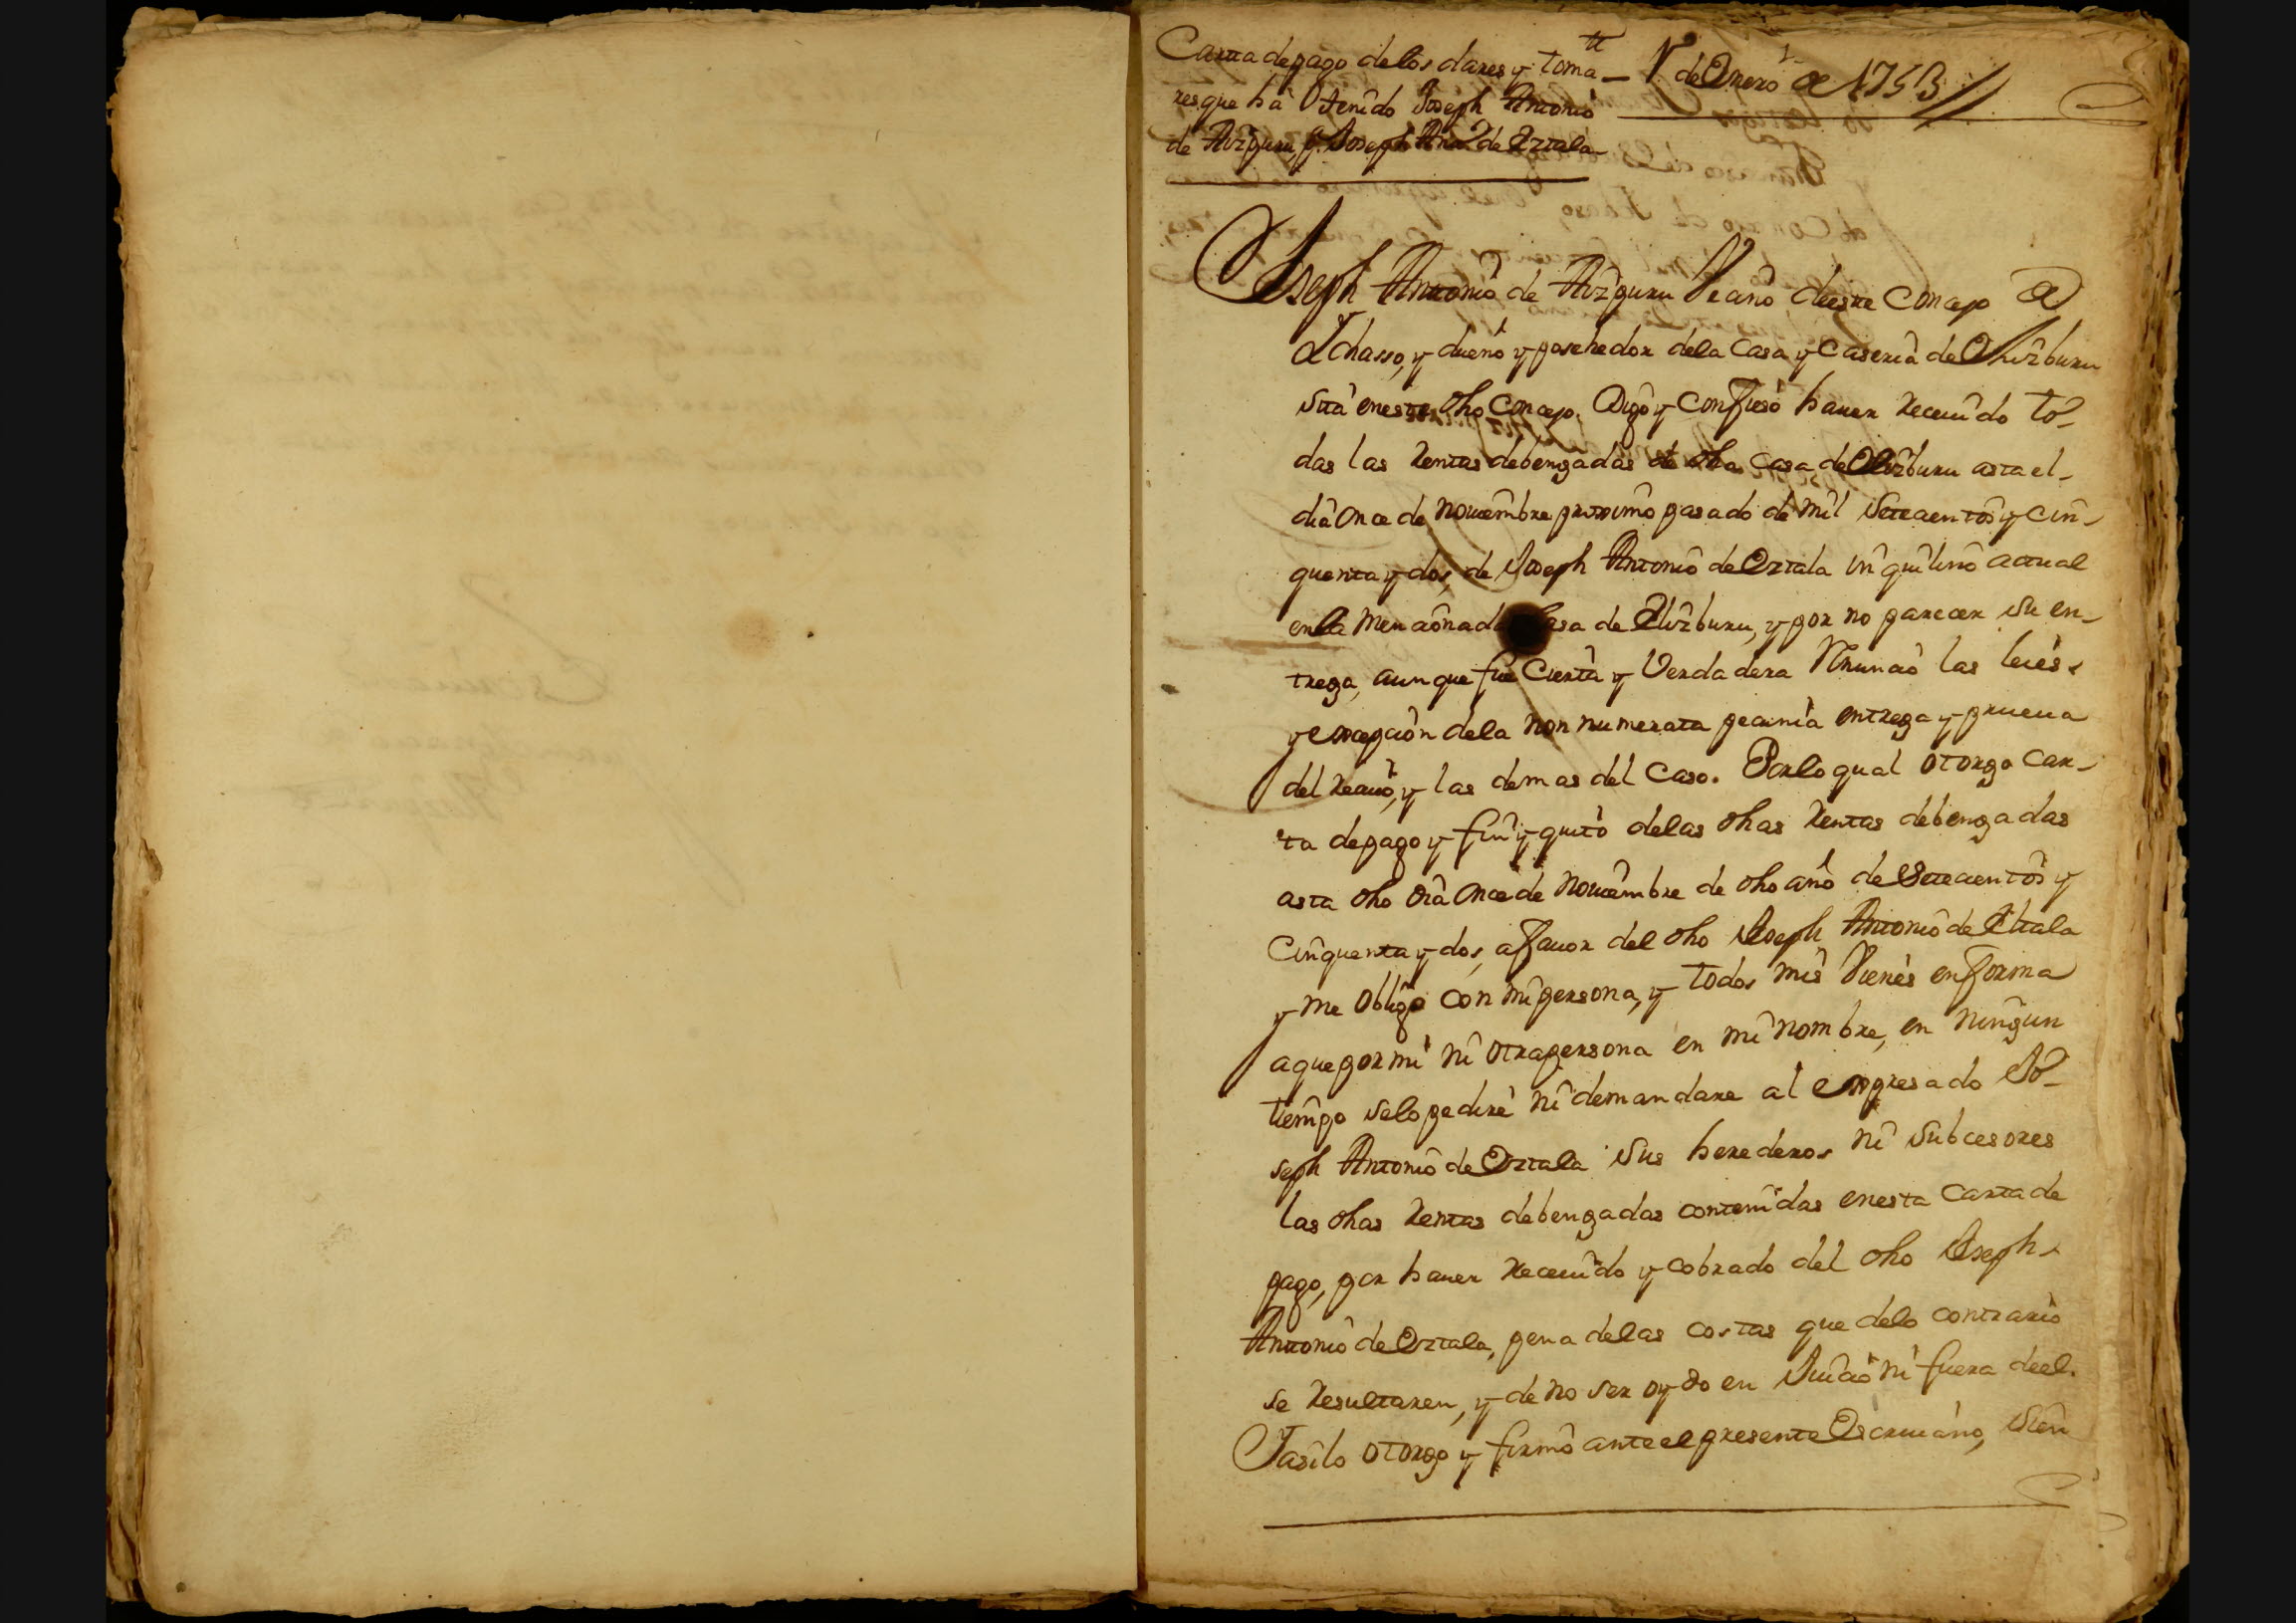 Carta de pago de los dares y toma
res que há tenido Joseph Antonio
de Aizguru, y Joseph Anto de Oztala
1 de Enero de 1753
Joseph Antonio de Aizguru Vecino de este Concejo de
Ichasso, y dueño y posehedor dela Casa y Caseria de Oluizburu
sita en este dho Concejo. Digo y Confieso hauer Receuido to-
das las Rentas debengadas de dha Casa de Oluizburu asta el-
dia Once de Nouiembre proximo pasado de mil Setecientos y cin-
quenta y dos, de Joseph Antonio de Oztala inquilino actual
en la Mencionada Casa de Oluizburu, y por no parecer su en-
trega, aunque fue Cierta y Verdadera Renuncio las leies
y excepcion dela non numerata pecunia entrega y prueua
del Reciuo, y las demas del Caso. Por lo qual otorgo Car-
ta de pago y fin y quito delas dhas Rentas debengadas
asta dho dia Once de Nouiembre de dho año de Setecientos y
Cinquenta y dos, a fauor del dho Joseph Antonio de Oztala
y me Obligo con mi persona, y todos mis Vienes en forma
a que por mi ni otra persona en mi nombre, en ningun
tiempo se lo pediré ni demandare al expresado Jo-
seph Antonio de Oztala sus herederos ni Subcesores
las dhas Rentas debengadas contenidas en esta Carta de
pago, por hauer Receuido y cobrado del dho Joseph
Antonio de Oztala, pena delas costas que delo contrario
se Resultaren, y de no ser oydo en Juicio ni fuera de el.
I asi lo otorgo y firmó ante el presente Escriuano, Sien